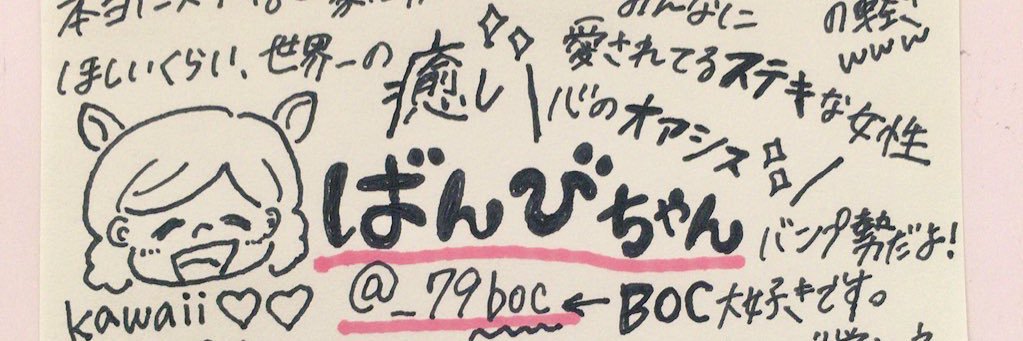 本当に
みんなに
の蛙、
www
ほしいくらい、世界一の
癒し
愛されてるステキな女性
心のオアシス
ばんびちゃん
バンプ勢だよ!
kawaii♡♡
@_79boc ← BOC大好きです。